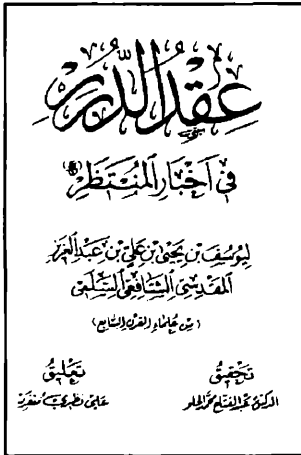 عِقْدُ الدُّرَرِ
فِي أَخْبَارِ المُنْتَظَرِ
ليوسف بن يحيى بن علي بن عبد العزيز
المقدسي الشافعي السلمي
(من علماء القرن السابع)
تحقيق
الدكتور عبد الفتاح محمد الحلو
تعليق
علي نظري منفرد